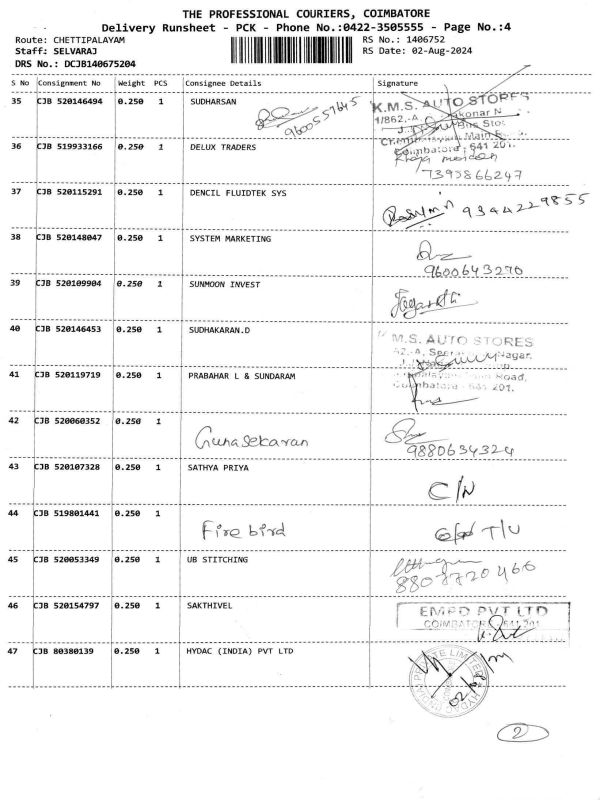 THE PROFESSIONAL COURIERS, COIMBATORE
Delivery Runsheet - PCK - Phone No.:0422-3505555 - Page No.:4
Route: CHETTIPALAYAM RS No.: 1406752
Staff: SELVARAJ RS Date: 02-Aug-2024
DRS No.: DCJB140675204
S No Consignment No Weight PCS Consignee Details Signature
35 CJB 520146494 0.250 1 SUDHARSAN
9600557645
K.M.S. AUTO STORES
1/862,-A,
Coimbatore - 641 201.
36 CJB 519933166 0.250 1 DELUX TRADERS
7393866247
37 CJB 520115291 0.250 1 DENCIL FLUIDTEK SYS
9344229855
38 CJB 520148047 0.250 1 SYSTEM MARKETING
9600643270
39 CJB 520109904 0.250 1 SUNMOON INVEST
40 CJB 520146453 0.250 1 SUDHAKARAN.D
M.S. AUTO STORES
Nagar,
Road,
641 201.
41 CJB 520119719 0.250 1 PRABAHAR L & SUNDARAM
42 CJB 520060352 0.250 1
Gunasekaran
9880634324
43 CJB 520107328 0.250 1 SATHYA PRIYA
C/N
44 CJB 519801441 0.250 1
Fire bird T/U
45 CJB 520053349 0.250 1 UB STITCHING
8807720466
46 CJB 520154797 0.250 1 SAKTHIVEL
EMPD PVT LTD
COIMBATORE - 641 201
47 CJB 80380139 0.250 1 HYDAC (INDIA) PVT LTD
2